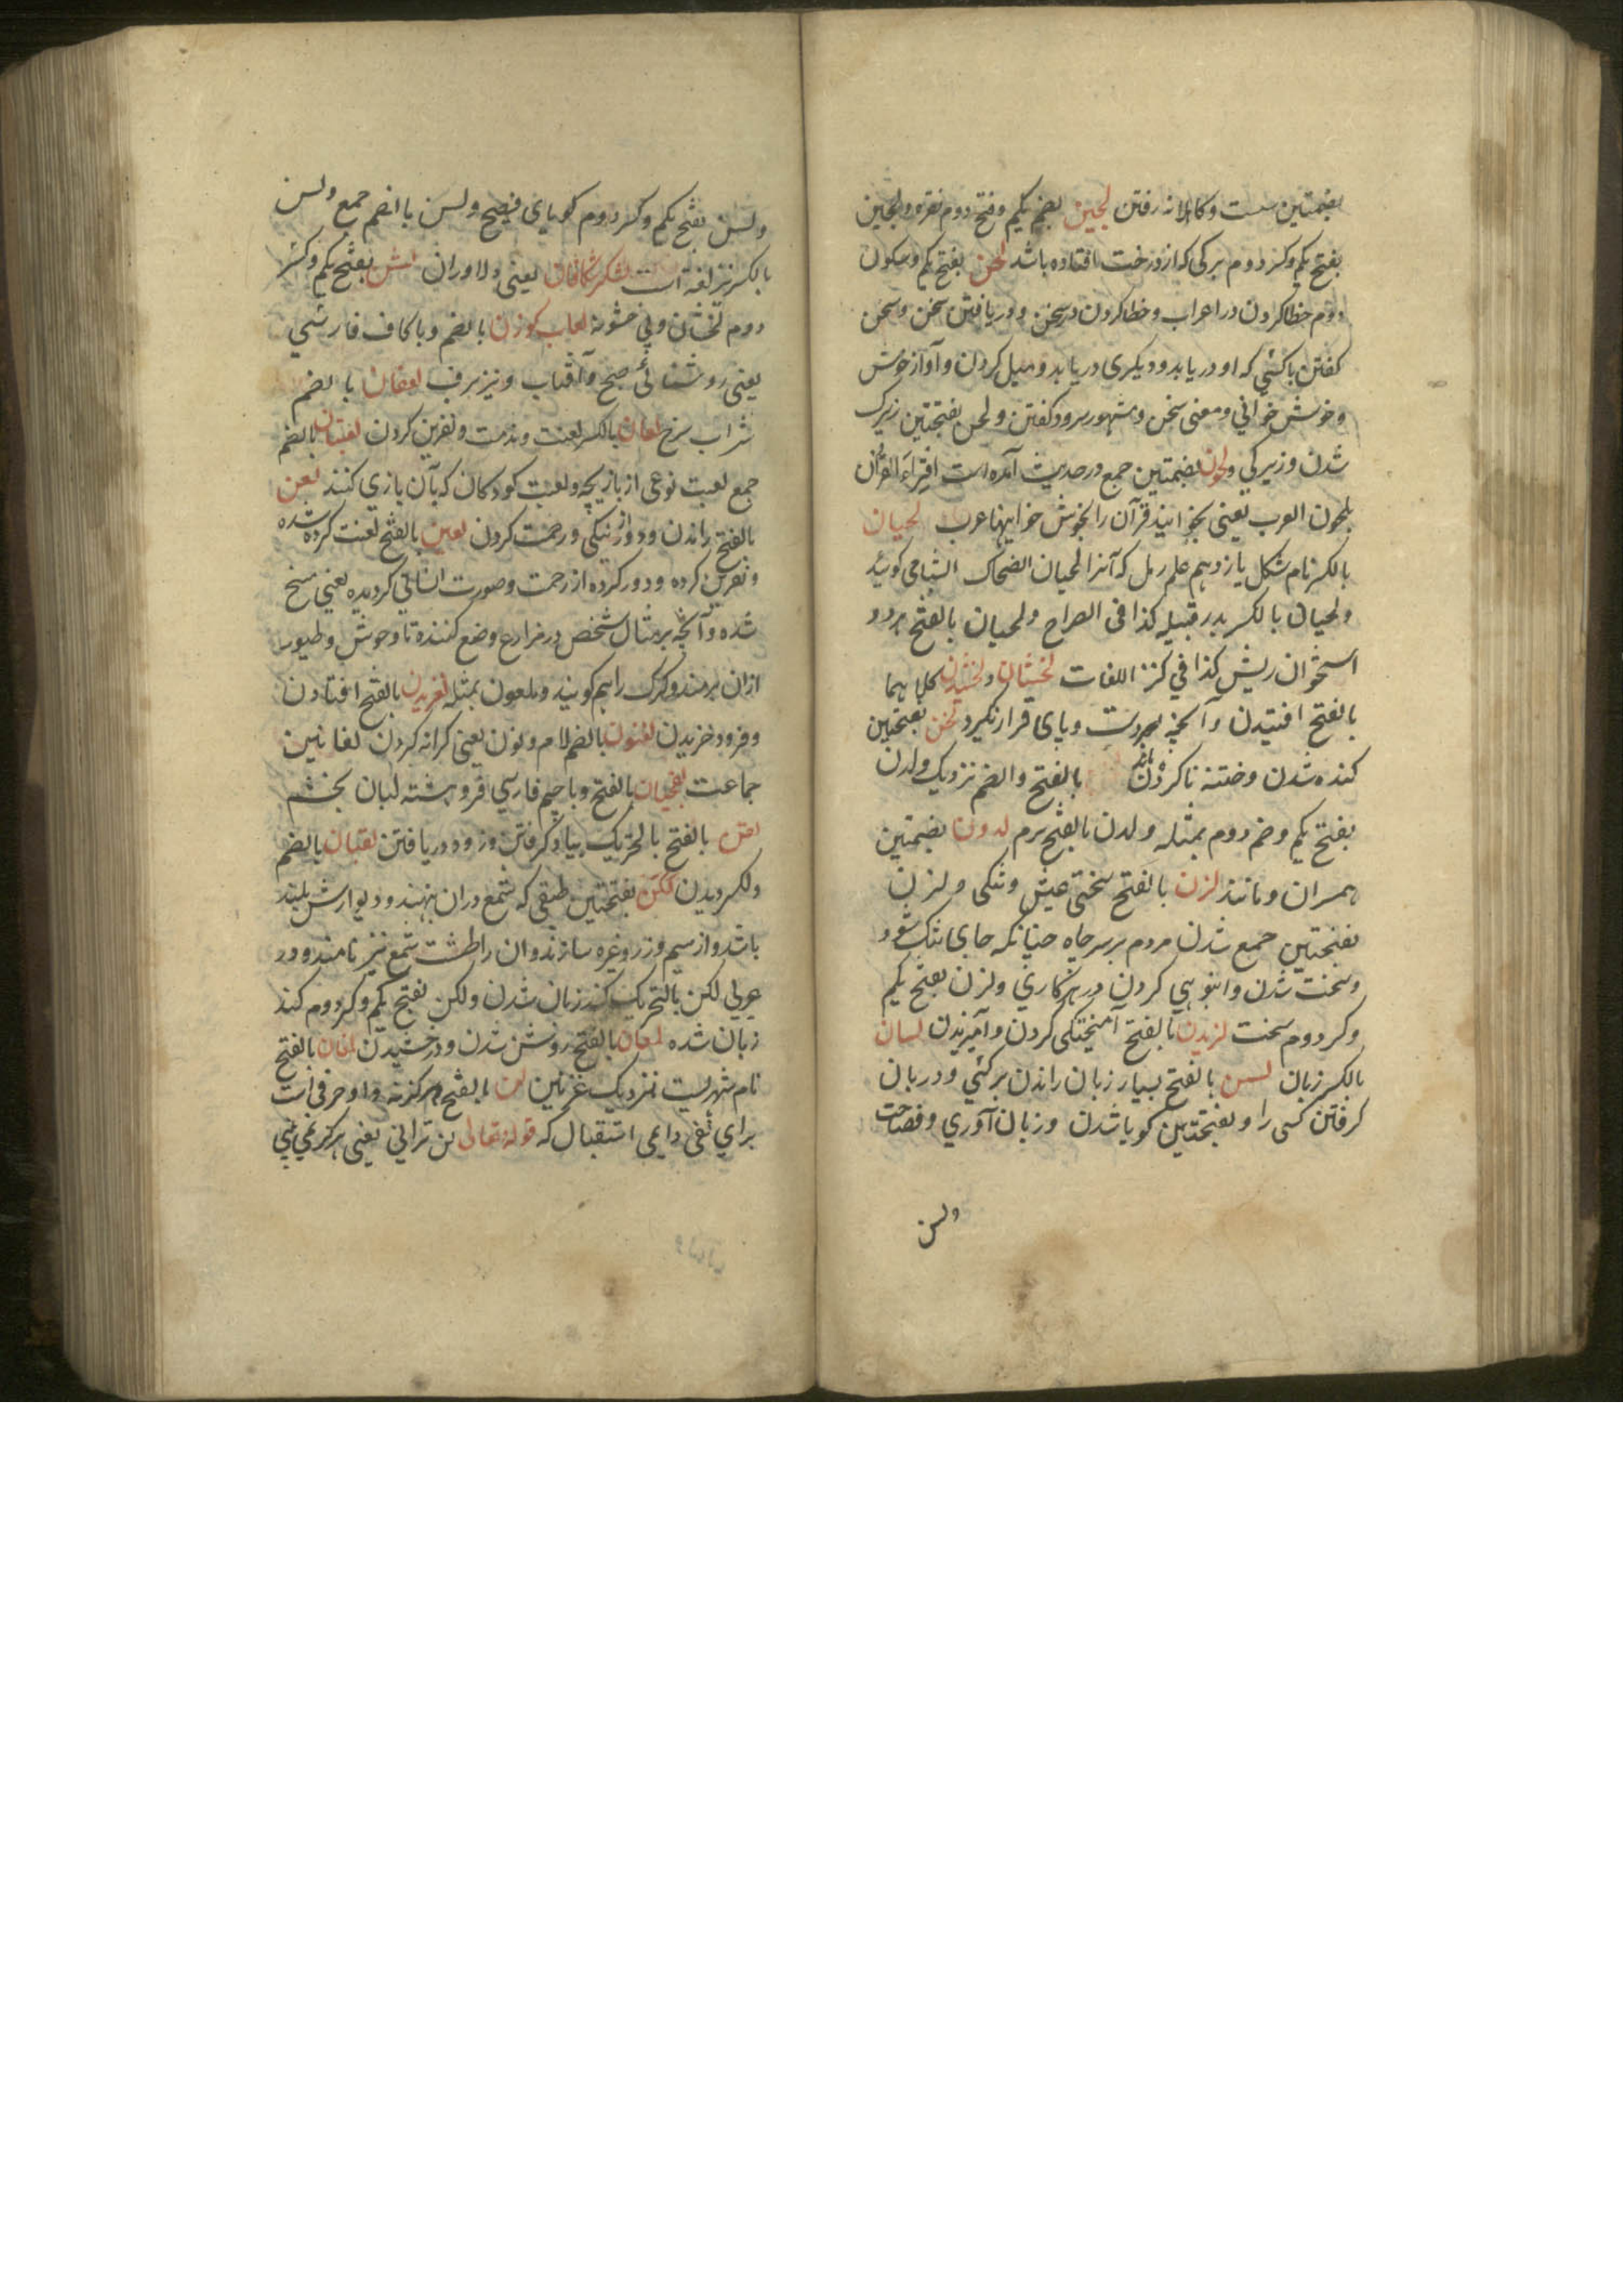 بضمتین سست و کاهلانه رفتن لجین بضم یکم وفتح دوم نقره ولجین
بفتح یکم وکسر دوم برکی که از درخت افتاده باشد لحن بفتح یکم وسکون
دوم خطا کردن در اعراب وخطا کردن در سخن ودریافتن سخن وسخن
کفتن با کسی که او دریابد ودیکری درنیابد ومیل کردن وآواز خوش
وخوش خوانی ومعنی سخن ومشهور سرود کفتن ولحن بفتحتین زیرک
شدن وزیرکی ولحون بضمتین جمع در حدیث آمده است اقراء القرآن
بلحون العرب یعنی بخوانید قرآن را بخوش خوانیهاء عرب لحیان
بالکسر نام شکل یازدهم علم رمل که آنرا لحیان الضحاک نیز کویند
ولحیان بالکسر پدر قبیله کذا فی الصراح ولحیان بالفتح هر دو
استخوان ریش کذا فی کنز اللغات لخشان ولخشیدن کلاهما
بالفتح افتیدن وآنچه برو دست وپای قرار نکیرد لخن بفتحتین
کنده شدن وختنه ناکردن بالفتح والضم نزدیک ولدن
بفتح یکم وضم دوم بمثله ولدن بالفتح نرم لدون بضمتین
همسران ومانند لزن بالفتح سختی عیش وتنکی ولزن
بفتحتین جمع شدن مردم بر سر چاه چنانکه جای تنک شود
وسخت شدن وانبوهی کردن در هر کاری ولزن بفتح یکم
وکسر دوم سخت لزیدن بالفتح آمیختکی کردن وآمیزیدن لسان
بالکسر زبان لسن بالفتح بسیار زبان راندن بر کسی ودر زبان
کرفتن کسی را وبفتحتین کویا شدن وزبان آوری وفصاحت
ولسن
ولسن بفتح یکم وکسر دوم کویای فصیح ولسن بالضم جمع ولسن
بالکسر نیز لغة است لشکر شکافان یعنی دلاوران لشن بفتح یکم وکسر
دوم لخشان وبی خشونة لعاب کوزن بالضم وبا کاف فارسی
یعنی روشنائی صبح وآفتاب ونیز برف بالضم
شراب سرخ لعان بالکسر لعنت ومذمت ونفرین کردن لعبتان بالضم
جمع لعبت نوعی از بازیچه ولعبت کودکان که بآن بازی کنند لعن
بالفتح راندن ودور از نیکی ورحمت کردن لعین بالفتح لعنت کرده شده
ونفرین کرده ودور کرده از رحمت وصورت انسانی کردیده یعنی مسخ
شده وآنچه بر مثال شخص در مزارع وضع کننده تا وحوش وطیور
ازان برمند وکرک را هم کویند وملعون بمثله لغزیدن بالفتح افتادن
وفرود خزیدن لغنون بالضم لام ونون یعنی کرانه کردن لفائین
جماعت لفجیان بالفتح وبا جیم فارسی فرو هشته لبان بخشم
لقن بالفتح بالتحریک بیاد کرفتن وزود دریافتن لقیان بالضم
ولکسر دیدن لکن بفتحتین طبقی که شمع دران نهند ودیوارش بلند
باشد واز سیم وزر وغیره سازند وآن را طشت شمع نیز نامند ودر
عربی لکن بالتحریک کند زبان شدن ولکن بفتح یکم وکسر دوم کند
زبان شده لمعان بالفتح روشن شدن ودرخشیدن لمغان بالفتح
نام شهریست نزدیک غزنین لن بالفتح هرکز نه واو حرفی است
برای نفی دایمی استقبال که قوله تعالی لن ترانی یعنی هرکز نمی بینی